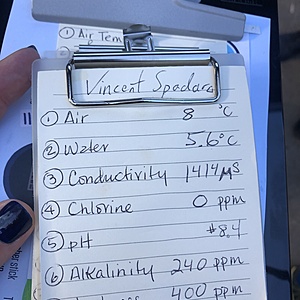 ① Air Tem
Vincent Spadaro
① Air 8 °C
② Water 5.6°C
③ Conductivity 1414 µS
④ Chlorine 0 ppm
⑤ pH 8.4
⑥ Alkalinity 240 ppm
400 ppm